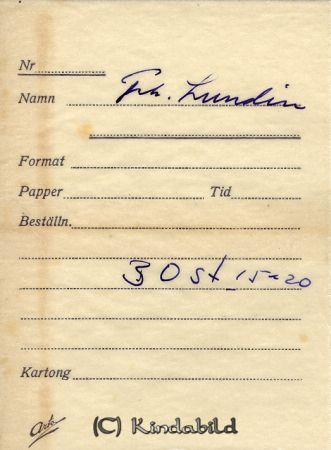 Nr
Namn Frk. Lundin
Format
Papper Tid
Beställn.
30 st 15-20
Kartong
(C) Kindabild